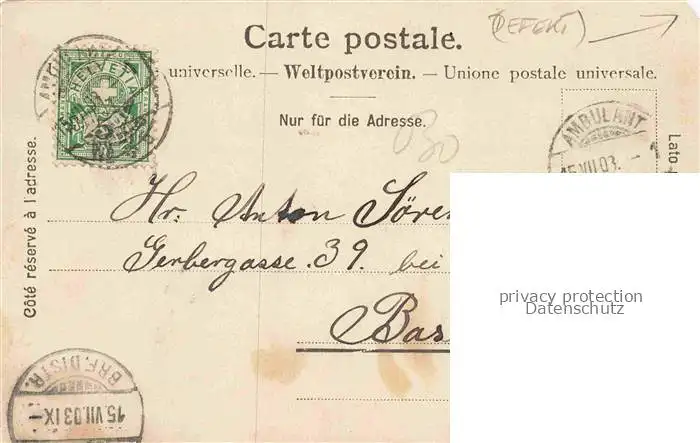 (DEFEKT)
Carte postale.
universelle. — Weltpostverein. — Unione postale universale.
Nur für die Adresse.
HELVETIA
AMBULANT
15.VII.03. -
Côté réservé à l'adresse.
Lato
Hr. Anton Sören
Gerbergasse. 39. bei
Bas
privacy protection
Datenschutz
BRF. DISTR.
15.VII.03 IX-